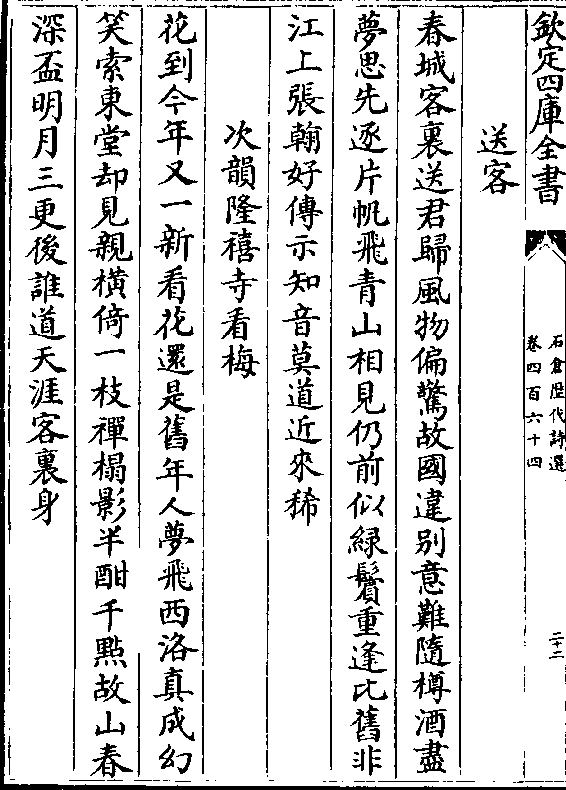 欽定四庫全書
石倉歴代詩選
卷四百六十四
二十二
送客
春城客裏送君歸風物偏驚故國違别意難隨樽酒盡
夢思先逐片帆飛青山相見仍前似綠鬢重逢比舊非
江上張翰好傳示知音莫道近來稀
次韻隆禧寺看梅
花到今年又一新看花還是舊年人夢飛西洛真成幻
笑索東堂却見親橫倚一枝禪榻影半酣千點故山春
深盃明月三更後誰道天涯客裏身